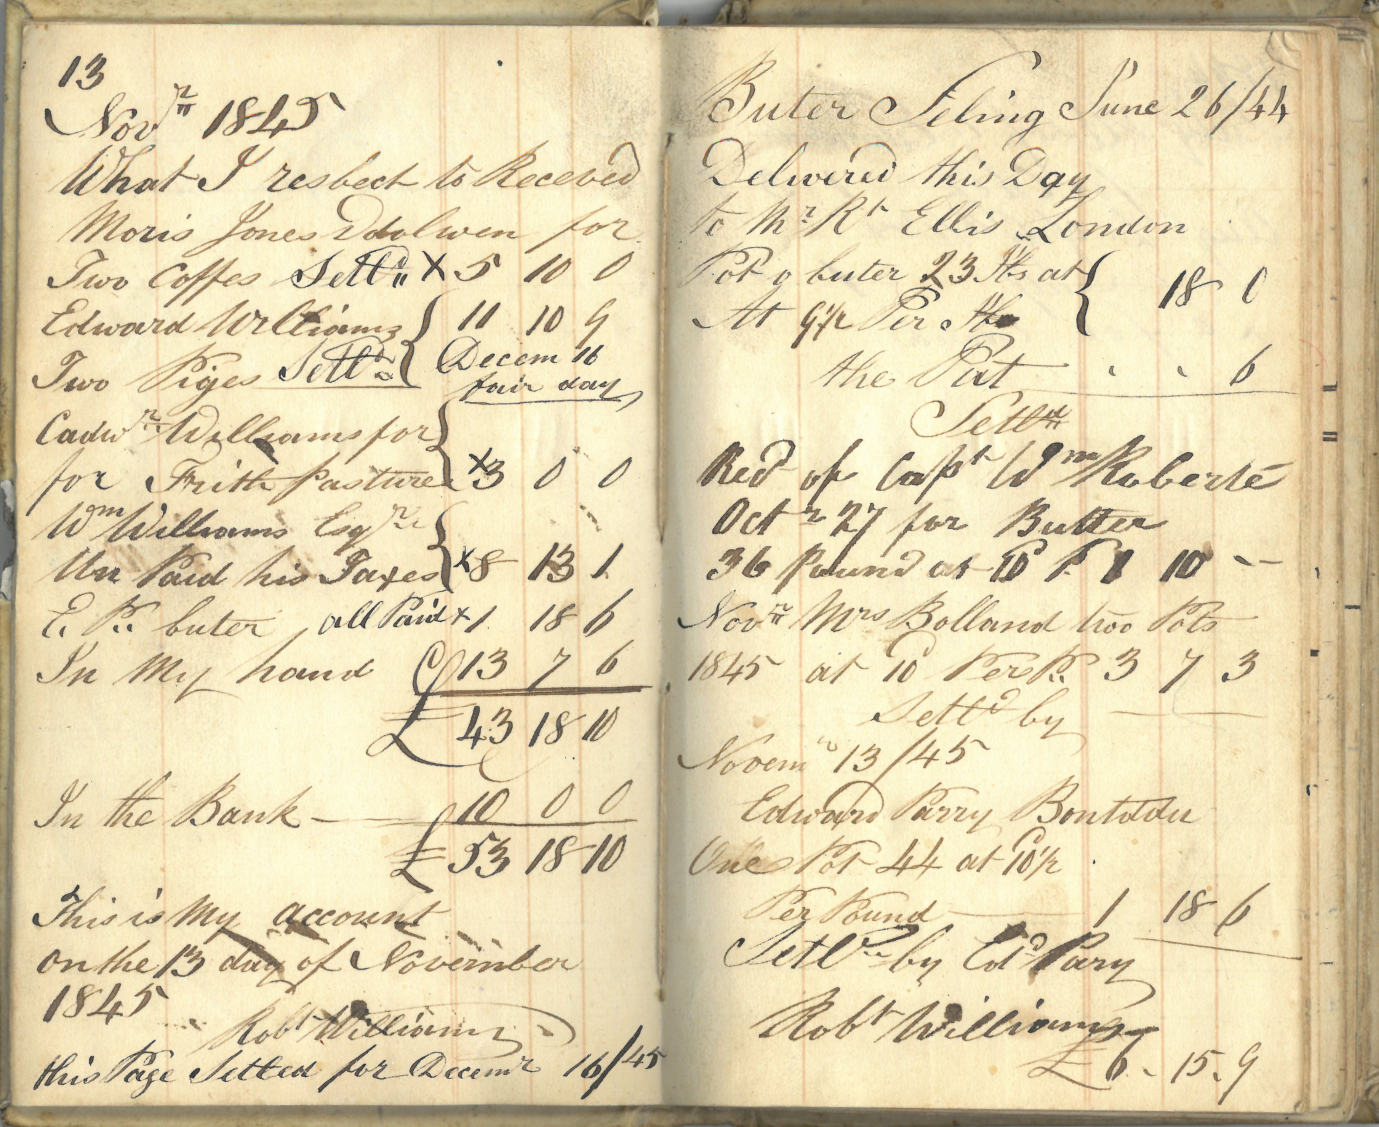 13
Novr 1845
What I resbect to Receved
Moris Jones Ddolwen for
Two Coffes Settd X 5 10 0
Edward Williams 11 10 9
Two Piges Settd Decem 16
fair day
Cadwr Williams for
for Frith Pasture X3 0 0
Wm Williams Esqr
Un Paid his Taxes X8 13 1
E. P. buter all Paid X1 18 6
In My hand 13 7 6
£ 43 18 10
In the Bank 10 0 0
£ 53 18 10
This is My account
on the 13 day of November
1845
Robt Williams
this Page Setted for Decemr 16/45
Buter Seling June 26/44
Delivered this Day
to Mr Rt Ellis London
Pot o buter 23 lbs at
At 9½ Per lb 18 0
the Pot 6
Settd
Recd of Capt Wm Roberts
Octr 27 for Butter
36 Pound at 10 P. 1 10 --
Novr Mrs Bolland two Pots
1845 at 10 Per P. 3 7 3
Settd by
Novemr 13/45
Edward Parry Bontddu
One Pot 44 at 10½
Per Pound 1 18 6
Settd by Edd Pary
Robt Williams
£ 6 - 15 - 9